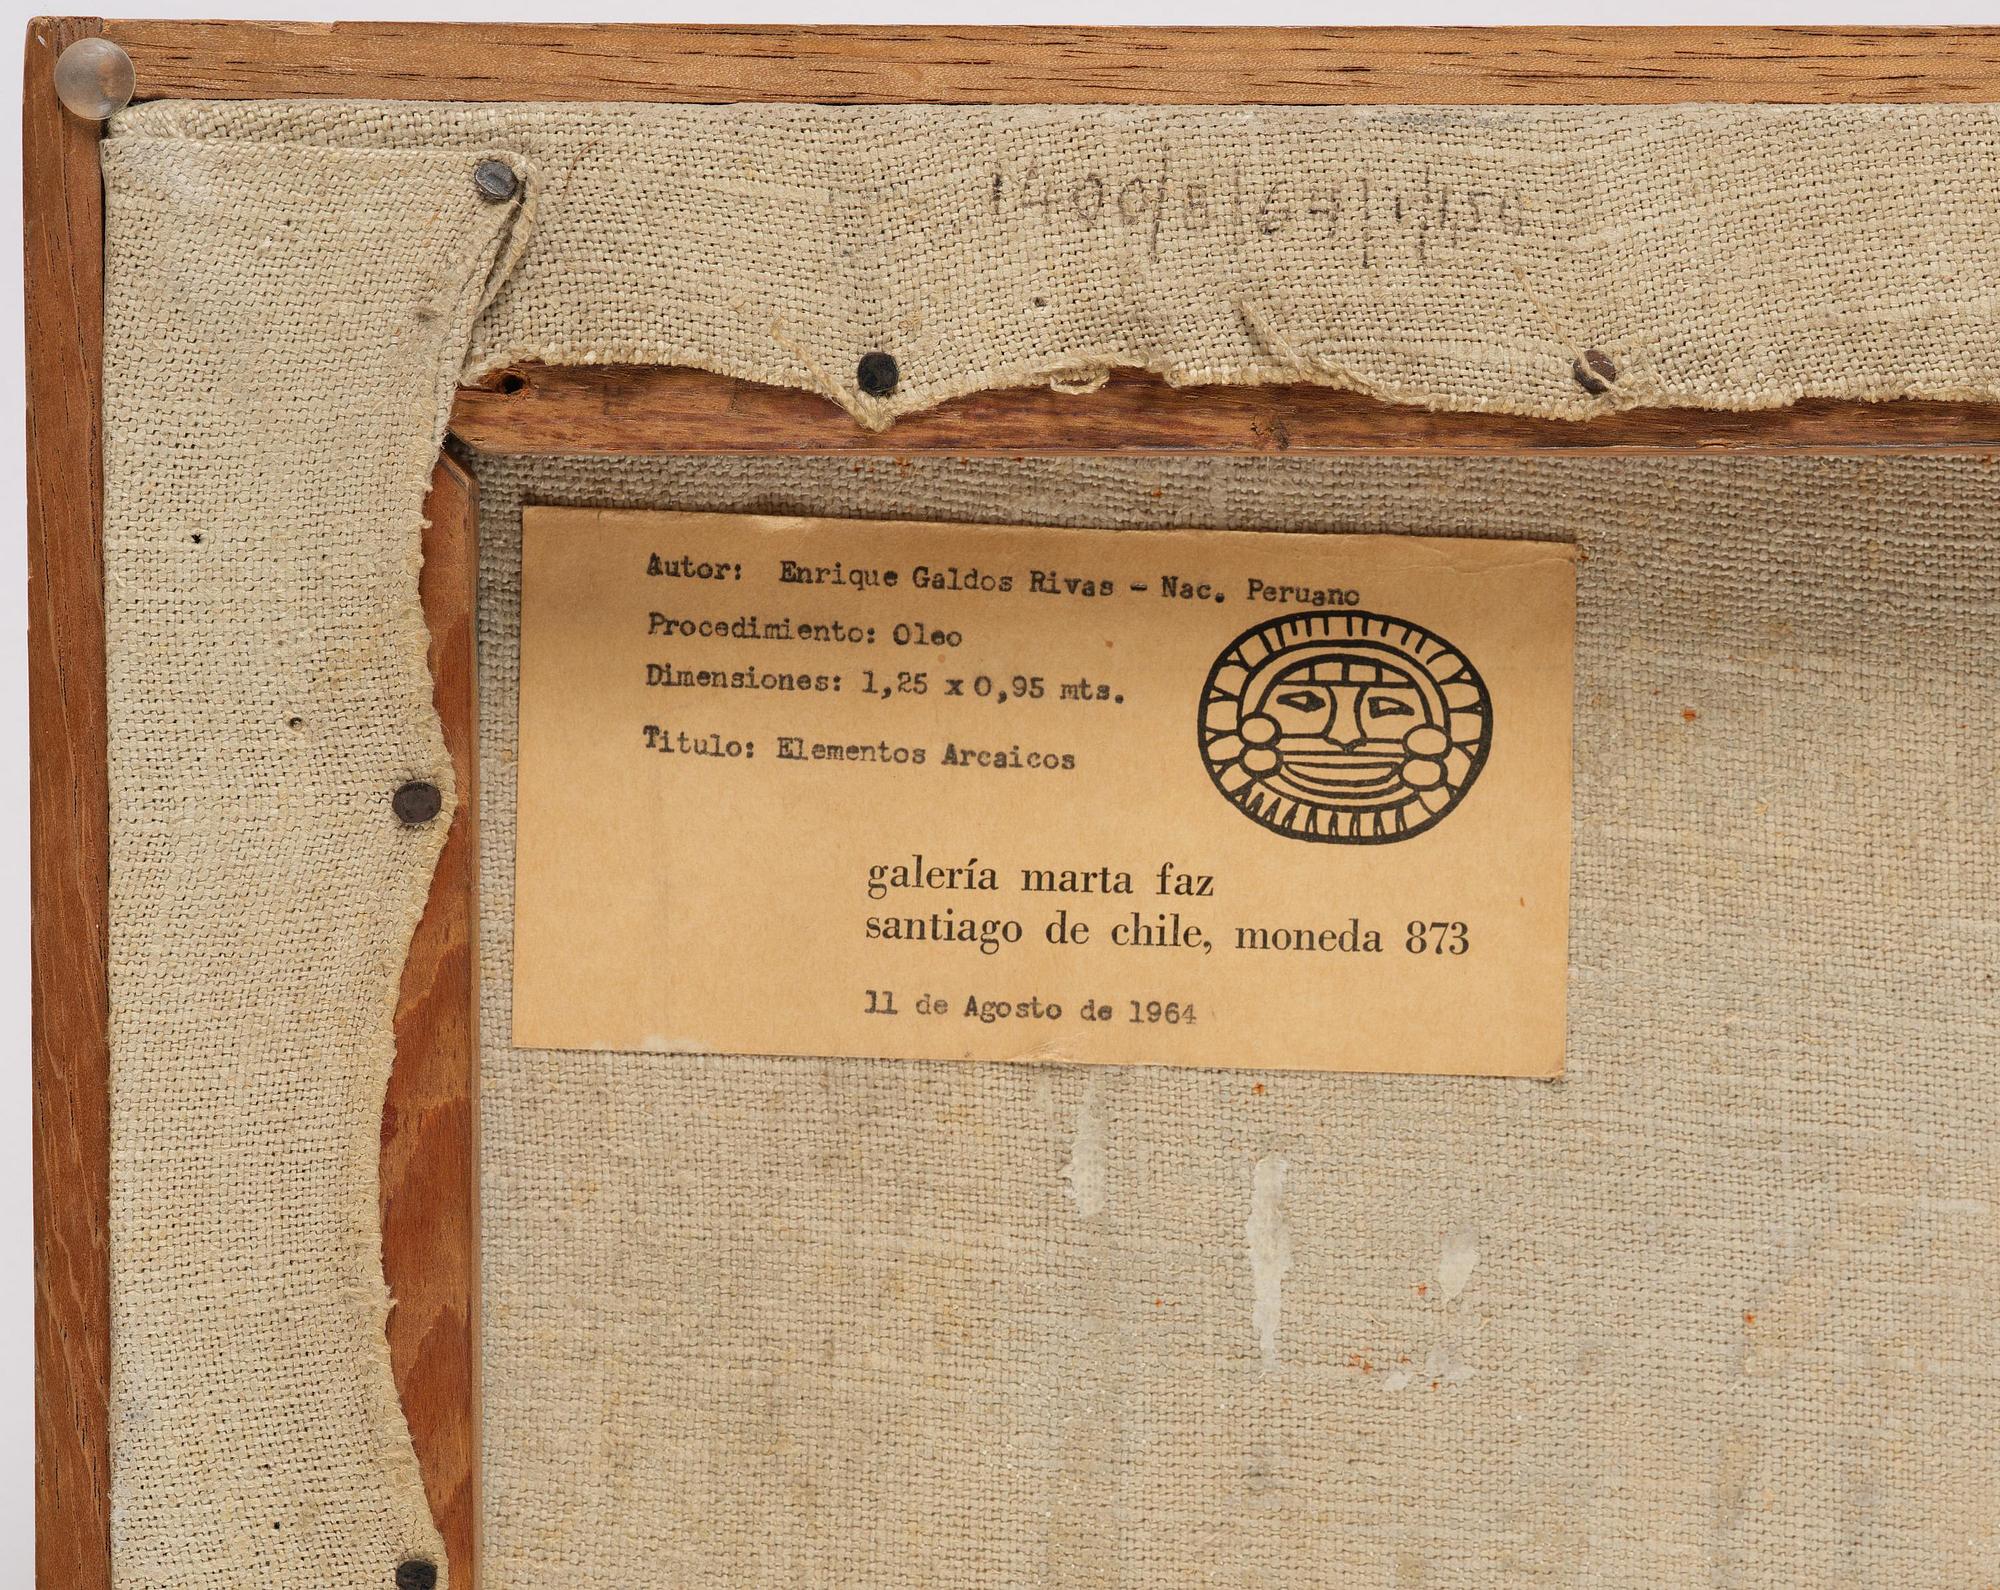 Autor: Enrique Galdos Rivas - Nac. Peruano
Procedimiento: Oleo
Dimensiones: 1,25 x 0,95 mts.
Titulo: Elementos Arcaicos
galería marta faz
santiago de chile, moneda 873
11 de Agosto de 1964